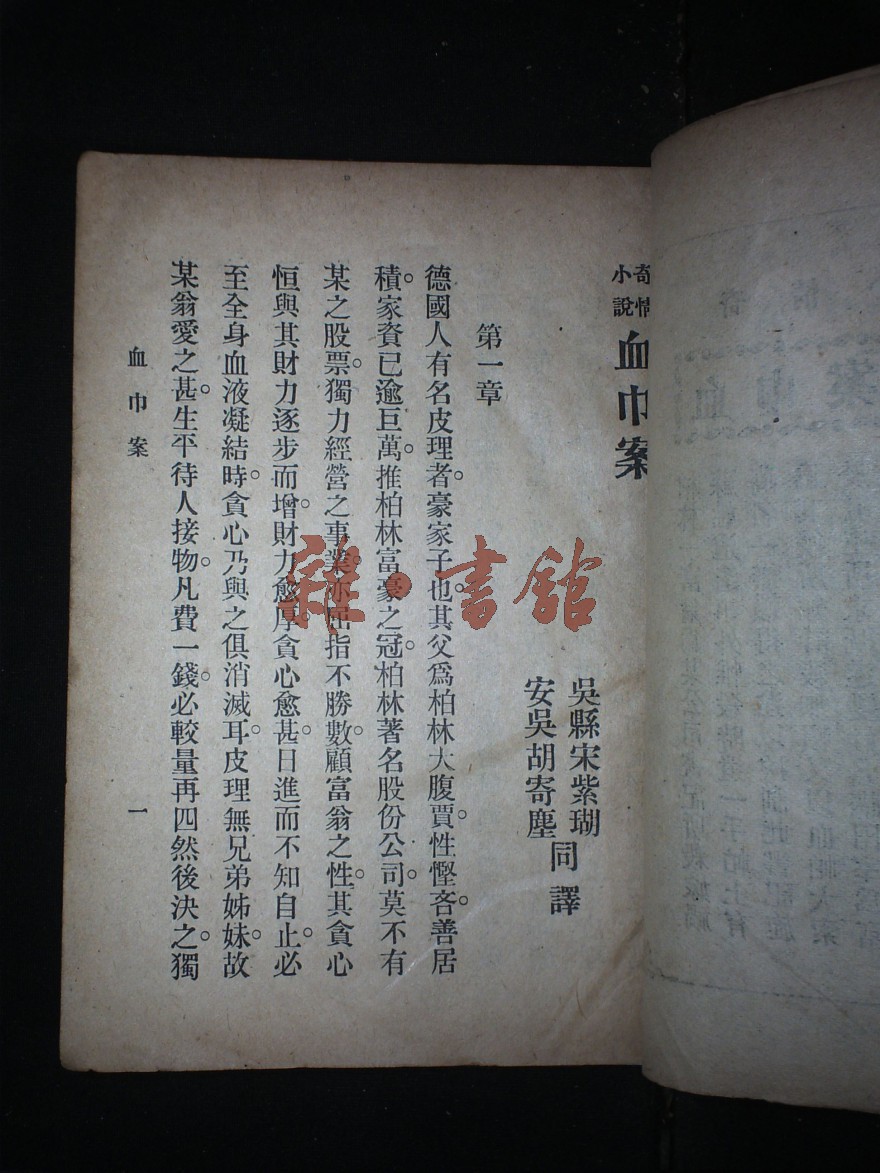 奇情
小說
血巾案
吳縣宋紫瑚
安吳胡寄塵
同譯
第一章
德國人有名皮理者。豪家子也。其父爲柏林大腹賈。性慳吝。善居
積。家資已逾巨萬。推柏林富豪之冠。柏林著名股份公司。莫不有
某之股票。獨力經營之事業。亦屈指不勝數。顧富翁之性。其貪心
恒與其財力逐步而增。財力愈厚。貪心愈甚。日進而不知自止。必
至全身血液凝結時。貪心乃與之俱消滅耳。皮理無兄弟姊妹。故
某翁愛之甚。生平待人接物。凡費一錢。必較量再四然後決之。獨
血巾案
一
雜·書館